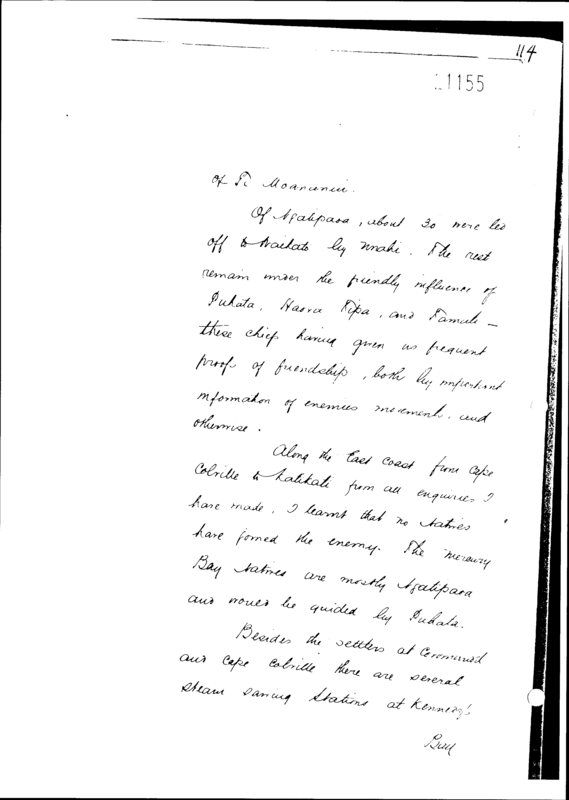 114
1155
of Te Moananui.
Of Ngatipaoa, about 30 were led
off to Waikato by . The rest
remain under the friendly influence of
Pukata, Haora Tipa, and Tamati —
these chiefs having given us frequent
proofs of friendship, both by important
information of enemies movements, and
otherwise.
Along the East Coast from Cape
Colville to Katikati from all enquiries I
have made, I learnt that no Natives
have joined the enemy. The Mercury
Bay Natives are mostly Ngatipaoa
and would be guided by Pukata.
Besides the settlers at Coromand
and Cape Colville there are several
steam sawing Stations at Kennedy's
Bay